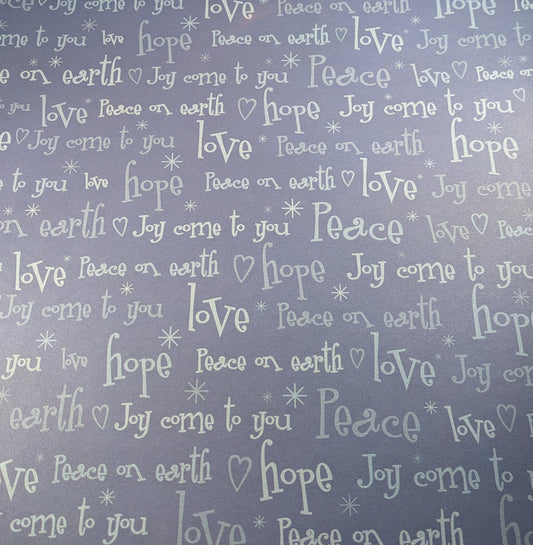 love hope
me to you love hope Peace on earth love Joy come to you
Peace on earth Joy come to you Peace love Peace on
to you love Peace on earth hope Joy come to you
love Joy come to you love Peace on earth hope
e to you love hope Peace on earth love Joy come
on earth Joy come to you Peace love Peace
love Peace on earth hope Joy come to you
Joy come to you love Peace on earth hope
you love hope Peace on earth love Joy c
earth Joy come to you Peace love
love Peace on earth hope Joy come to
come to you love Peace on earth